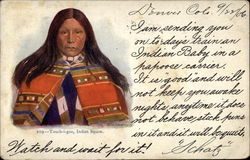 Denver Colo. 9/22/06
I am sending you
on to days train an
Indian Baby in a
papoose carrier
It is good and will
not keep you awake
nights, anytime it does
not behave, stick pins
in it and it will be quiet
Watch and wait for it! "Schatz"
Indian Squaw.